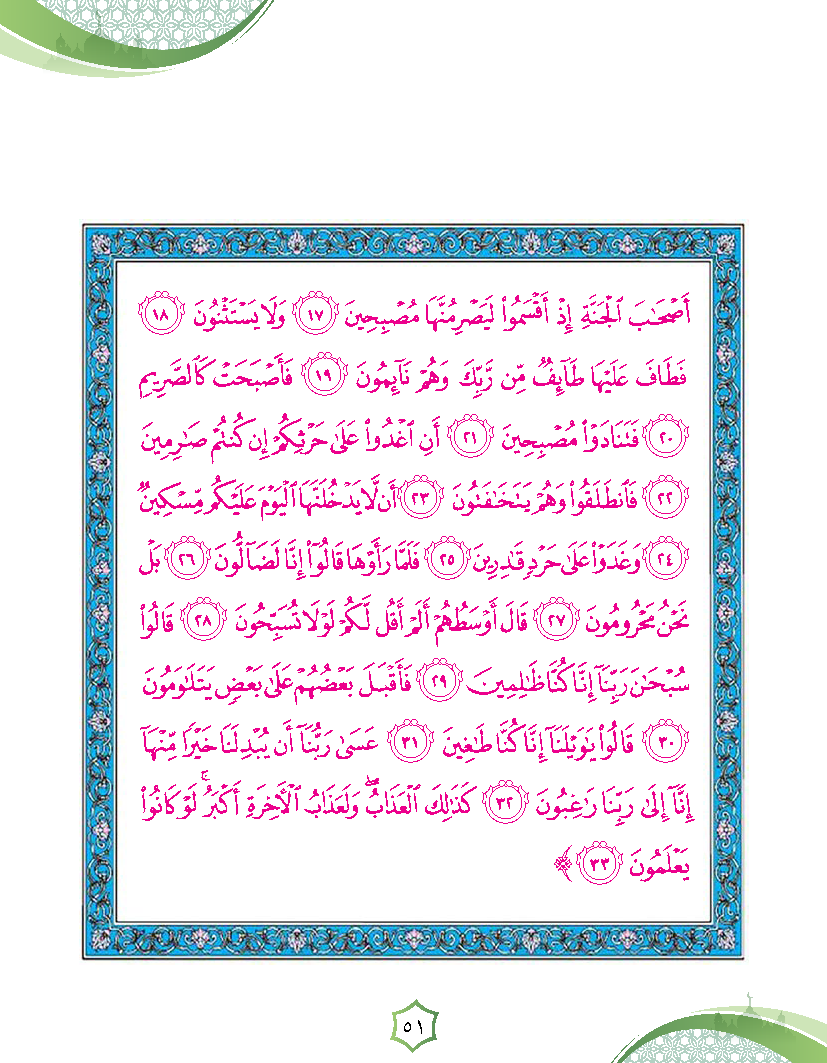 أَصْحَٰبَ ٱلْجَنَّةِ إِذْ أَقْسَمُوا۟ لَيَصْرِمُنَّهَا مُصْبِحِينَ ١٧ وَلَا يَسْتَثْنُونَ ١٨
فَطَافَ عَلَيْهَا طَآئِفٌ مِّن رَّبِّكَ وَهُمْ نَآئِمُونَ ١٩ فَأَصْبَحَتْ كَٱلصَّرِيمِ
٢٠ فَتَنَادَوْا۟ مُصْبِحِينَ ٢١ أَنِ ٱغْدُوا۟ عَلَىٰ حَرْثِكُمْ إِن كُنتُمْ صَٰرِمِينَ
٢٢ فَٱنطَلَقُوا۟ وَهُمْ يَتَخَٰفَتُونَ ٢٣ أَن لَّا يَدْخُلَنَّهَا ٱلْيَوْمَ عَلَيْكُم مِّسْكِينٌ
٢٤ وَغَدَوْا۟ عَلَىٰ حَرْدٍ قَٰدِرِينَ ٢٥ فَلَمَّا رَأَوْهَا قَالُوٓا۟ إِنَّا لَضَآلُّونَ ٢٦ بَلْ
نَحْنُ مَحْرُومُونَ ٢٧ قَالَ أَوْسَطُهُمْ أَلَمْ أَقُل لَّكُمْ لَوْلَا تُسَبِّحُونَ ٢٨ قَالُوا۟
سُبْحَٰنَ رَبِّنَآ إِنَّا كُنَّا ظَٰلِمِينَ ٢٩ فَأَقْبَلَ بَعْضُهُمْ عَلَىٰ بَعْضٍ يَتَلَٰوَمُونَ
٣٠ قَالُوا۟ يَٰوَيْلَنَآ إِنَّا كُنَّا طَٰغِينَ ٣١ عَسَىٰ رَبُّنَآ أَن يُبْدِلَنَا خَيْرًا مِّنْهَآ
إِنَّآ إِلَىٰ رَبِّنَا رَٰغِبُونَ ٣٢ كَذَٰلِكَ ٱلْعَذَابُ ۖ وَلَعَذَابُ ٱلْءَاخِرَةِ أَكْبَرُ ۚ لَوْ كَانُوا۟
يَعْلَمُونَ ٣٣ ﴾
٥١